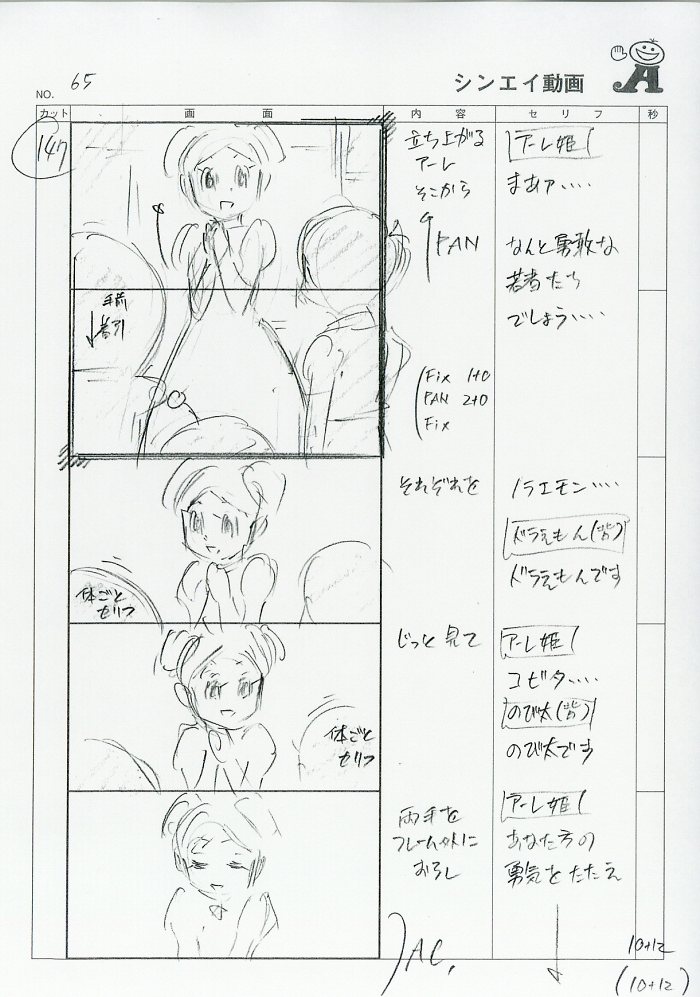 NO. 65
シンエイ動画
A
カット
画 面
内 容
セリフ
秒
147
立ち上がる
アーレ
そこから
PAN
Fix 1+0
PAN 2+0
Fix
手前
アーレ姫
まあァ‥‥
なんと勇敢な
若者たち
でしょう‥‥
それぞれを
ノラエモン‥‥
ドラえもん(背)
ドラえもんです
体ごと
セリフ
じっと見て
アーレ姫
コビタ‥‥
のび太(背)
のび太です
体ごと
セリフ
両手を
フレーム外に
おろし
アーレ姫
あなた方の
勇気をたたえ
A.C.
10+12
(10+12)